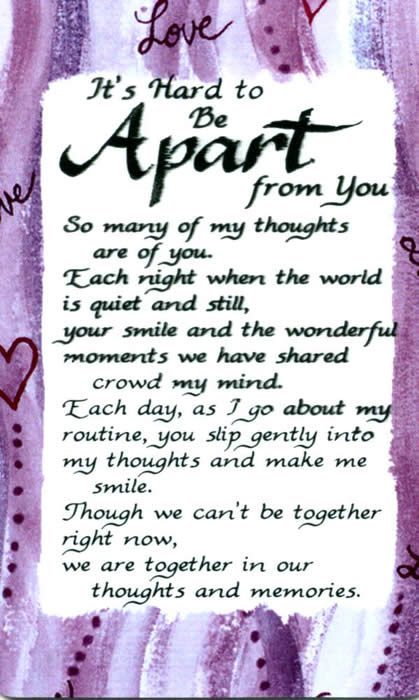 Love
It's Hard to
Be
Apart
from You
So many of my thoughts
are of you.
Each night when the world
is quiet and still,
your smile and the wonderful
moments we have shared
crowd my mind.
Each day, as I go about my
routine, you slip gently into
my thoughts and make me
smile.
Though we can't be together
right now,
we are together in our
thoughts and memories.